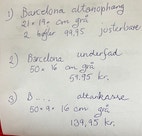 1) Barcelona altanophang
21 × 19 × cm grå
2 hofter 99,95 justerbare
2) Barcelona underfad
50 × 16 cm grå
59,95 kr.
3) B... altankasse
50 × 9 × 16 cm grå
139,95 kr.